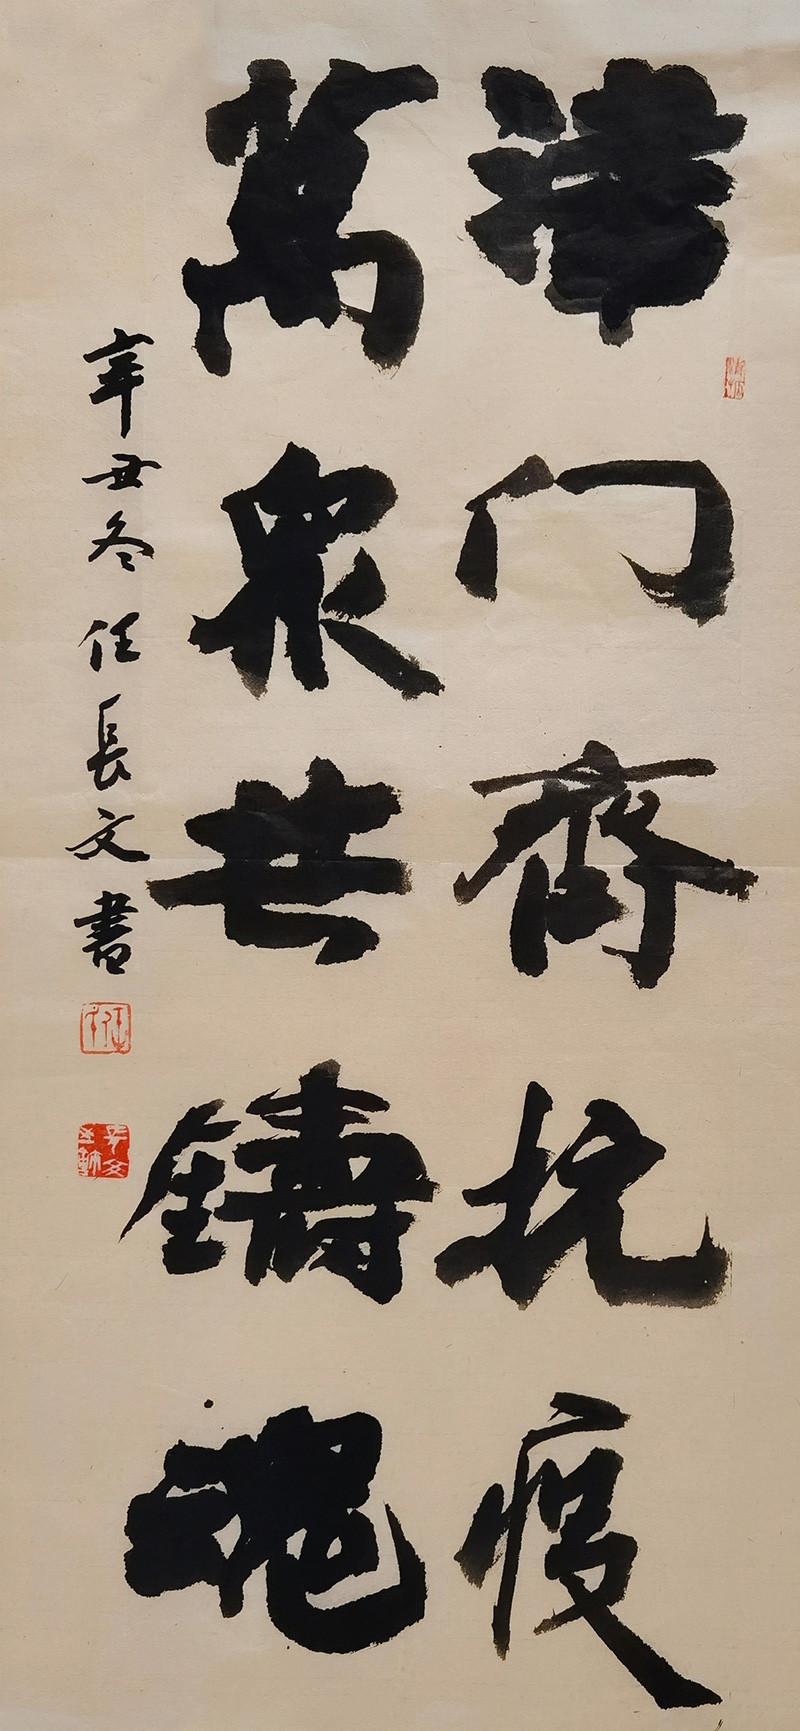 津门齊抗疫
萬衆共鑄魂
辛丑冬任長文書